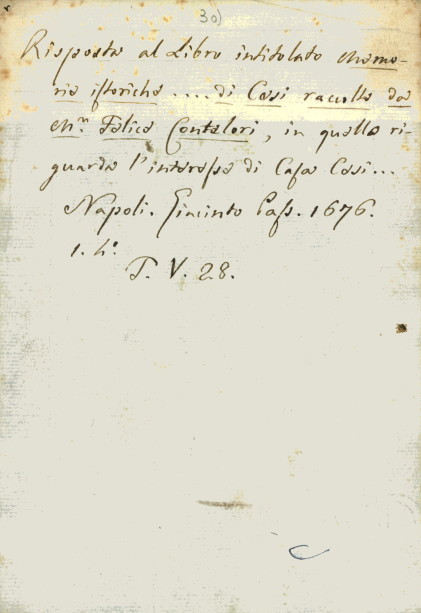 30)
Risposta al Libro intitolato Memo-
rie istoriche .... di Cesi raccolte da
M.r Felice Contelori, in quello ri-
guarda l'interesse di Casa Cesi...
Napoli. Giacinto Pass. 1676.
1. h.o
T. V. 28.